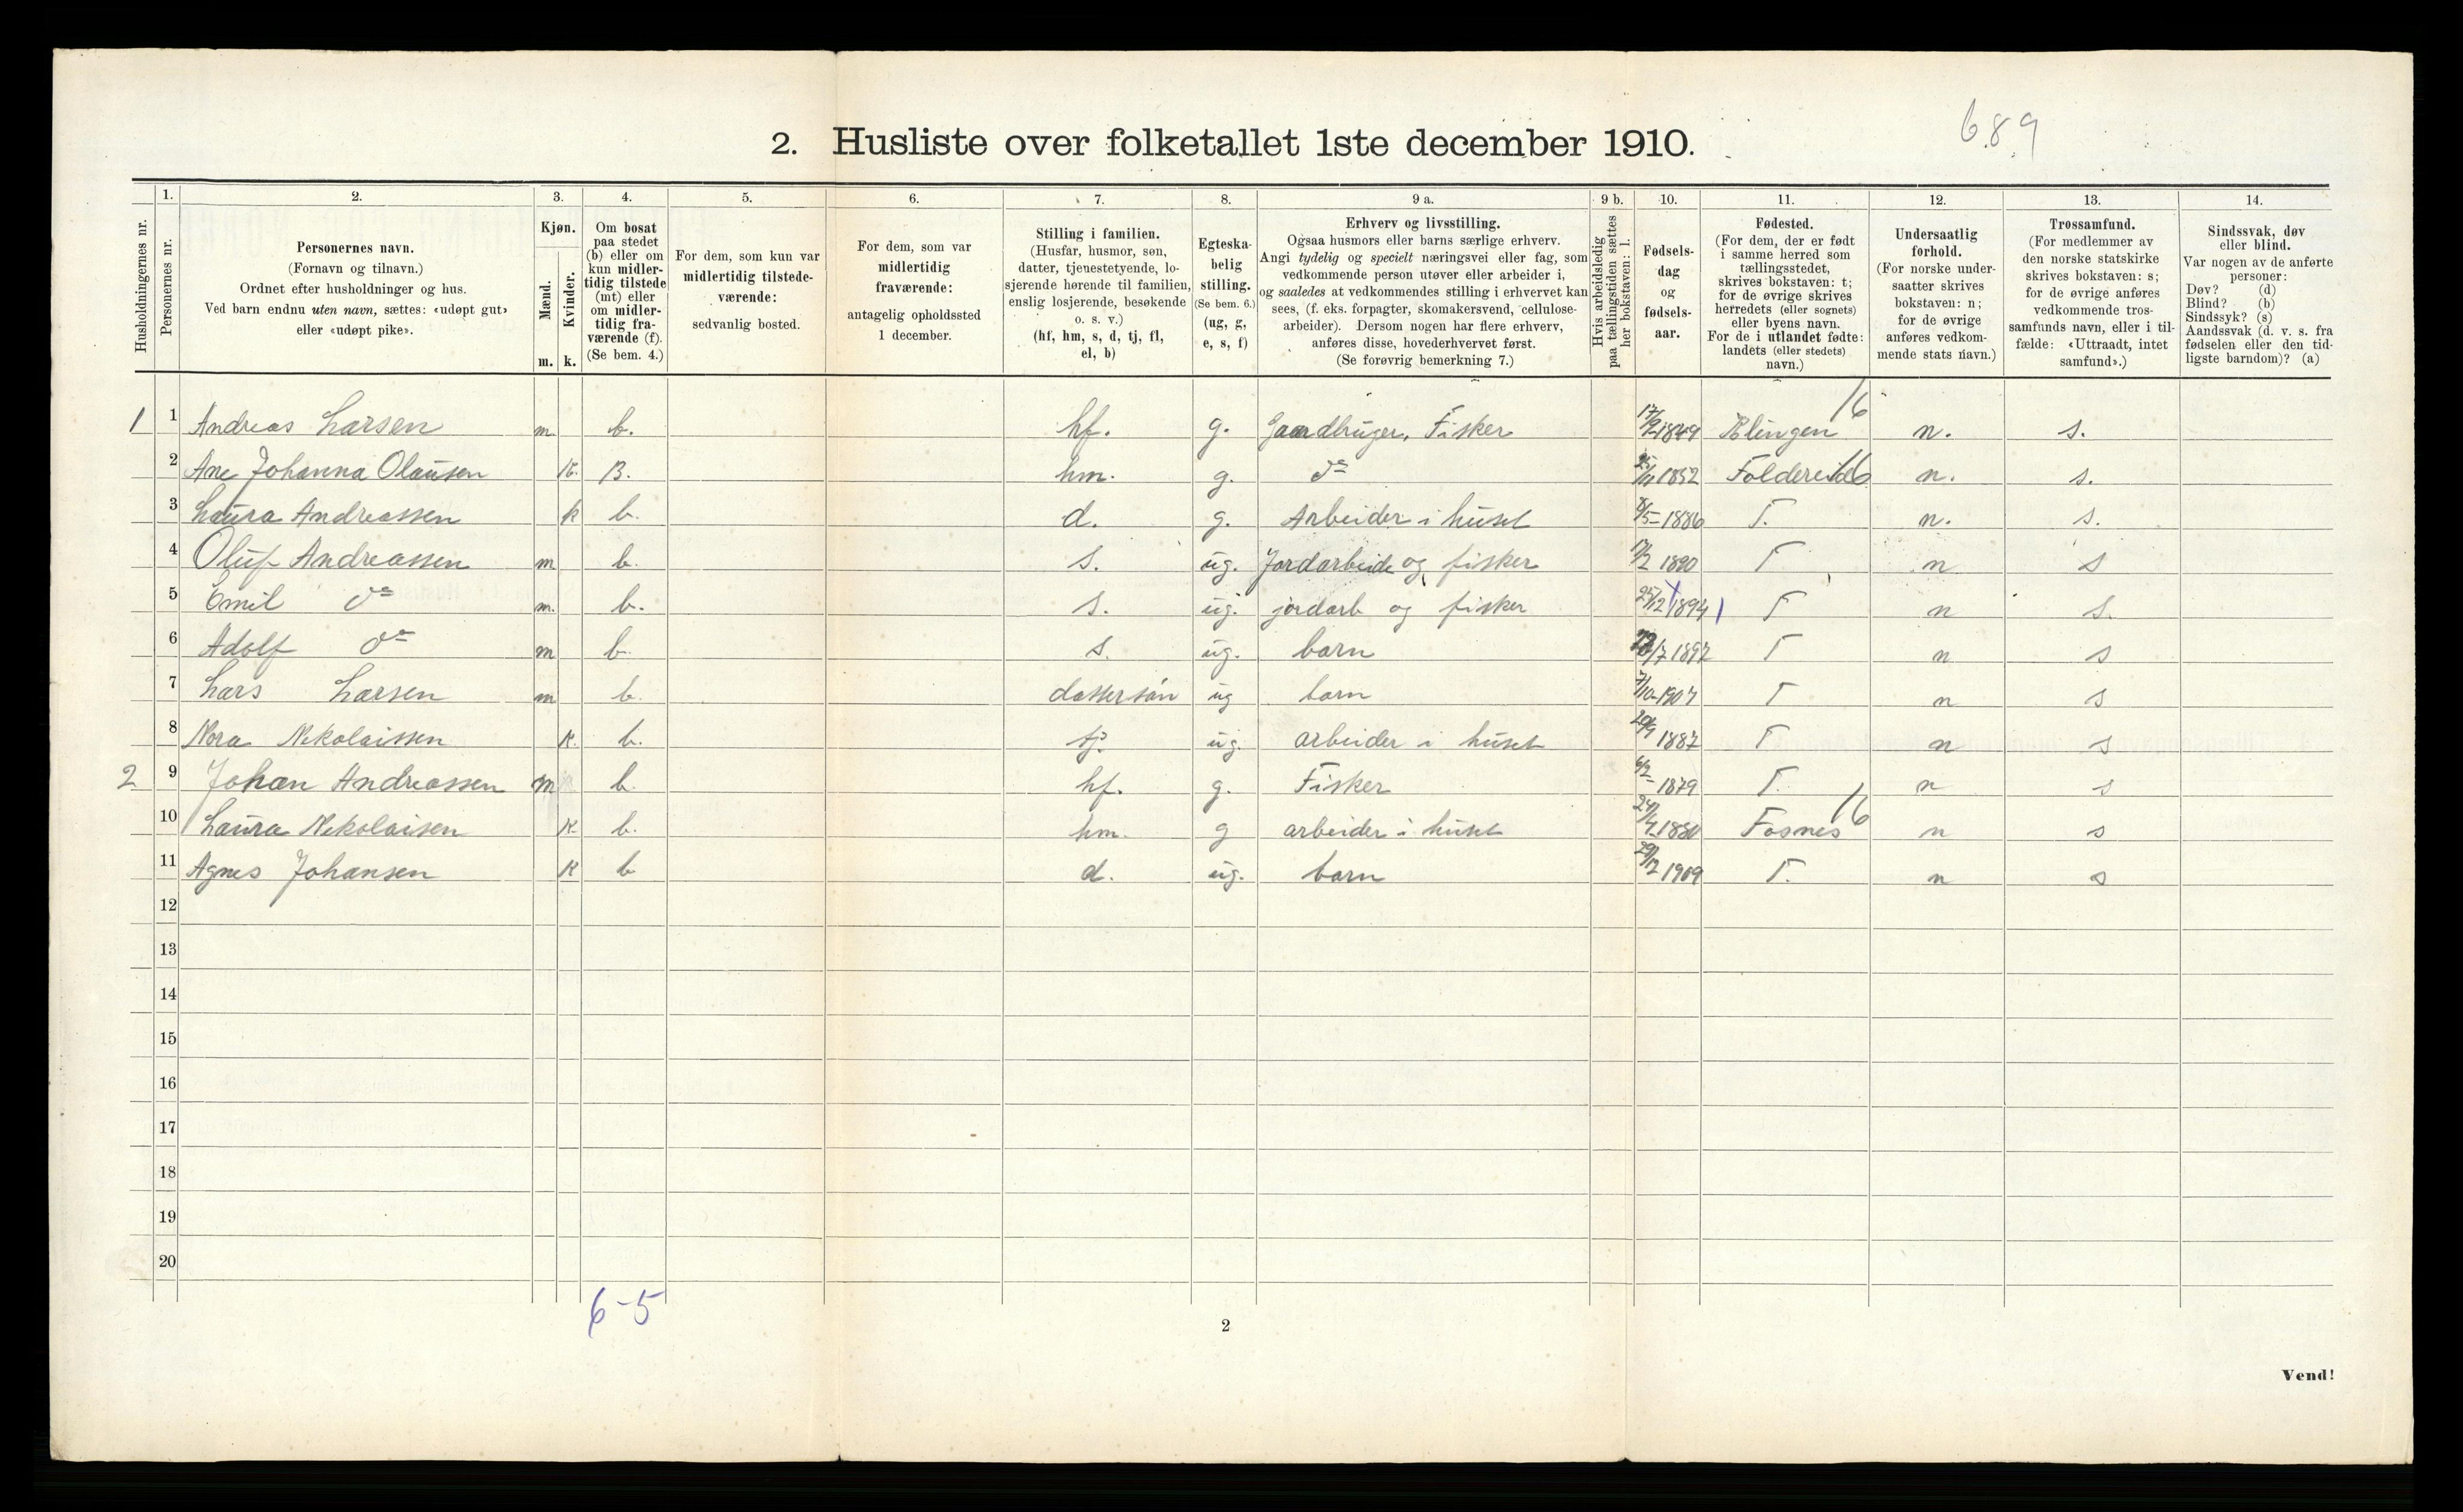 689
2. Husliste over folketallet 1ste december 1910.
Husholdningernes nr.
1. Personernes nr.
2. Personernes navn. (Fornavn og tilnavn.) Ordnet efter husholdninger og hus. Ved barn endnu uten navn, sættes: «udøpt gut» eller «udøpt pike».
3. Kjøn. Mænd. m. Kvinder. k.
4. Om bosat paa stedet (b) eller om kun midlertidig tilstede (mt) eller om midlertidig fraværende (f). (Se bem. 4.)
5. For dem, som kun var midlertidig tilstedeværende: sedvanlig bosted.
6. For dem, som var midlertidig fraværende: antagelig opholdssted 1 december.
7. Stilling i familien. (Husfar, husmor, søn, datter, tjenestetyende, losjerende hørende til familien, enslig losjerende, besøkende o. s. v.) (hf, hm, s, d, tj, fl, el, b)
8. Egteskabelig stilling. (Se bem. 6.) (ug, g, e, s, f)
9 a. Erhverv og livsstilling. Ogsaa husmors eller barns særlige erhverv. Angi tydelig og specielt næringsvei eller fag, som vedkommende person utøver eller arbeider i, og saaledes at vedkommendes stilling i erhvervet kan sees, (f. eks. forpagter, skomakersvend, cellulosearbeider). Dersom nogen har flere erhverv, anføres disse, hovederhvervet først. (Se forøvrig bemerkning 7.)
9 b. Hvis arbeidsledig paa tællingstiden sættes her bokstaven: l.
10. Fødselsdag og fødselsaar.
11. Fødested. (For dem, der er født i samme herred som tællingsstedet, skrives bokstaven: t; for de øvrige skrives herredets (eller sognets) eller byens navn. For de i utlandet fødte: landets (eller stedets) navn.)
12. Undersaatlig forhold. (For norske undersaatter skrives bokstaven: n; for de øvrige anføres vedkommende stats navn.)
13. Trossamfund. (For medlemmer av den norske statskirke skrives bokstaven: s; for de øvrige anføres vedkommende trossamfunds navn, eller i tilfælde: «Uttraadt, intet samfund».)
14. Sindssvak, døv eller blind. Var nogen av de anførte personer: Døv? (d) Blind? (b) Sindssyk? (s) Aandssvak (d. v. s. fra fødselen eller den tidligste barndom)? (a)
1 1 Andreas Larsen m. b. hf. g. Gaardbruger, Fisker 17/9 1849 16 n. s.
2 Ane Johanna Olausen K. B. hm. g. do 1852 Foldereid 16 n. s.
3 Laura Andreassen k b. d. g. Arbeider i huset 1886 T. n. s.
4 Oluf Andreassen m b. s. ug. Jordarbeide og fisker 1890 T n s
5 Emil do m. b. s. ug. jordarb og fisker 25/12 1894 T n s.
6 Adolf do m b. s. ug. barn 1897 T n s
7 Lars Larsen m b. dattersøn ug barn 7/10-1907 T n s
8 Nora Nikolaissen K. b. tj. ug. arbeider i huset 1887 T n s
2 9 Johan Andreassen m b. hf. g. Fisker 6/2 1879 T. n s
10 Laura Nikolaisen K b. hm. g arbeider i huset 1880 Fosnes 16 n s
11 Agnes Johansen K b d. ug. barn 29/12 1909 T. n s
12
13
14
15
16
17
18
19
20
6-5
2
Vend!